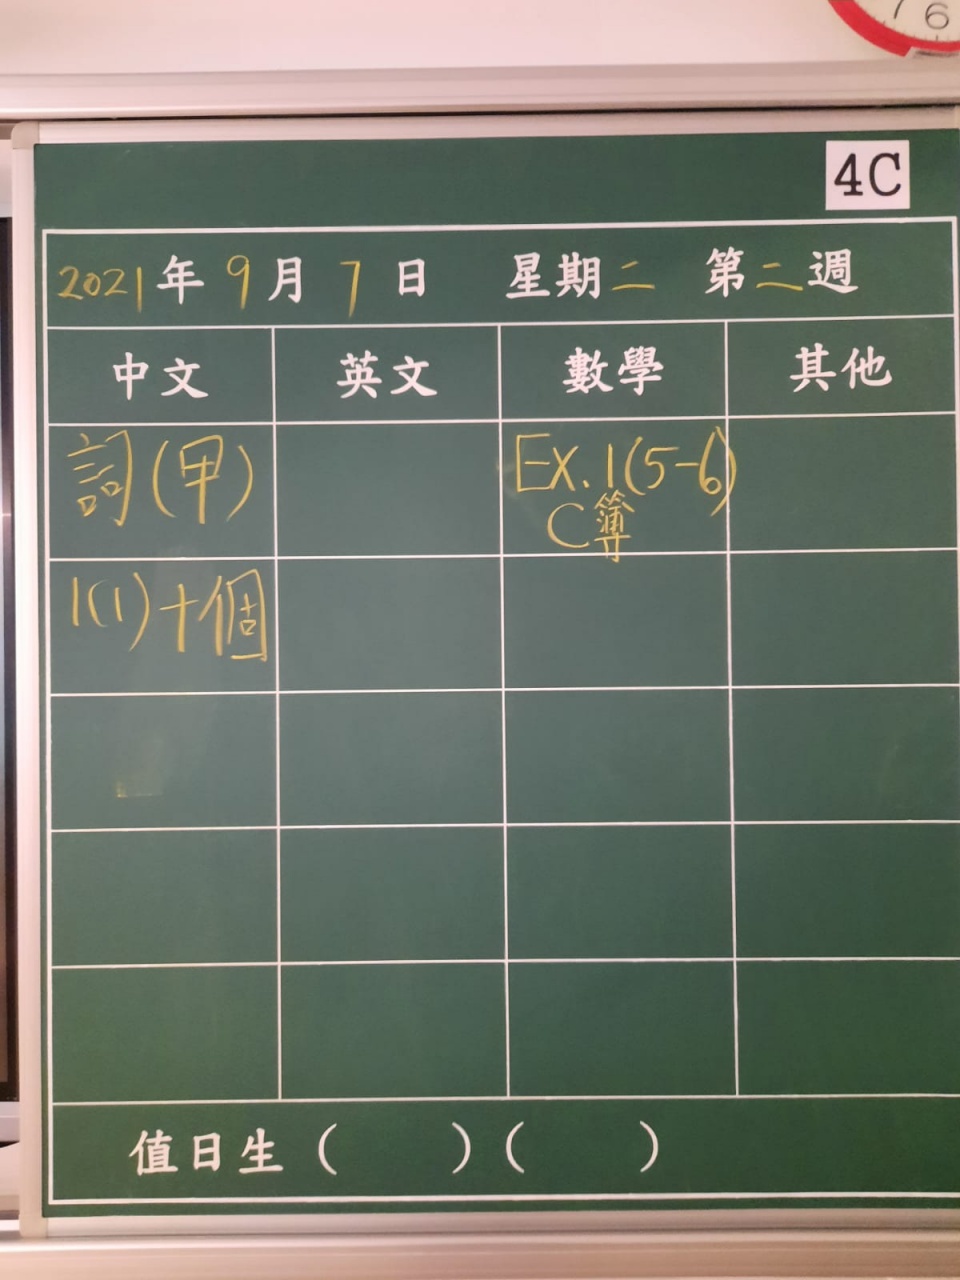 7 6
4C
2021年9月7日 星期二 第二週
中文 英文 數學 其他
詞(甲) Ex. 1(5-6)
C簿
1(1)十個
值日生 ( ) ( )